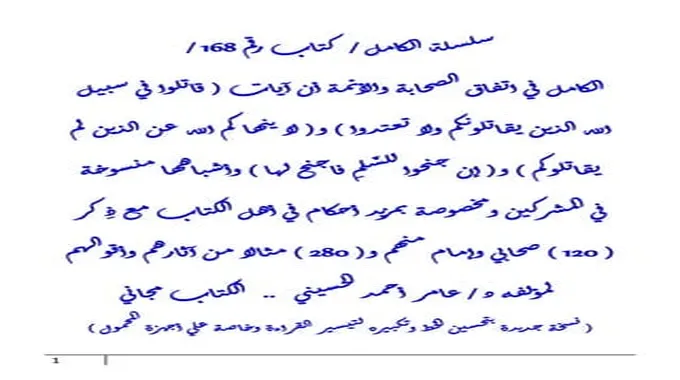 سلسلة الكامل / كتاب رقم 168 /
الكامل في اتفاق الصحابة والأئمة أن آيات ( قاتلوا في سبيل
الله الذين يقاتلونكم ولا تعتدوا ) و( لا ينهاكم الله عن الذين لم
يقاتلوكم ) و( إن جنحوا للسّلم فاجنح لها ) وأشباهها منسوخة
في المشركين ومخصوصة بمزيد أحكام في أهل الكتاب مع ذِكر
( 120 ) صحابي وإمام منهم و( 280 ) مثالا من آثارهم وأقوالهم
لمؤلفه و / عامر أحمد الحسيني .. الكتاب مجاني
( نسخة جديدة بتحسين الخط وتكبيره لتيسير القراءة وخاصة علي أجهزة المحمول )
1